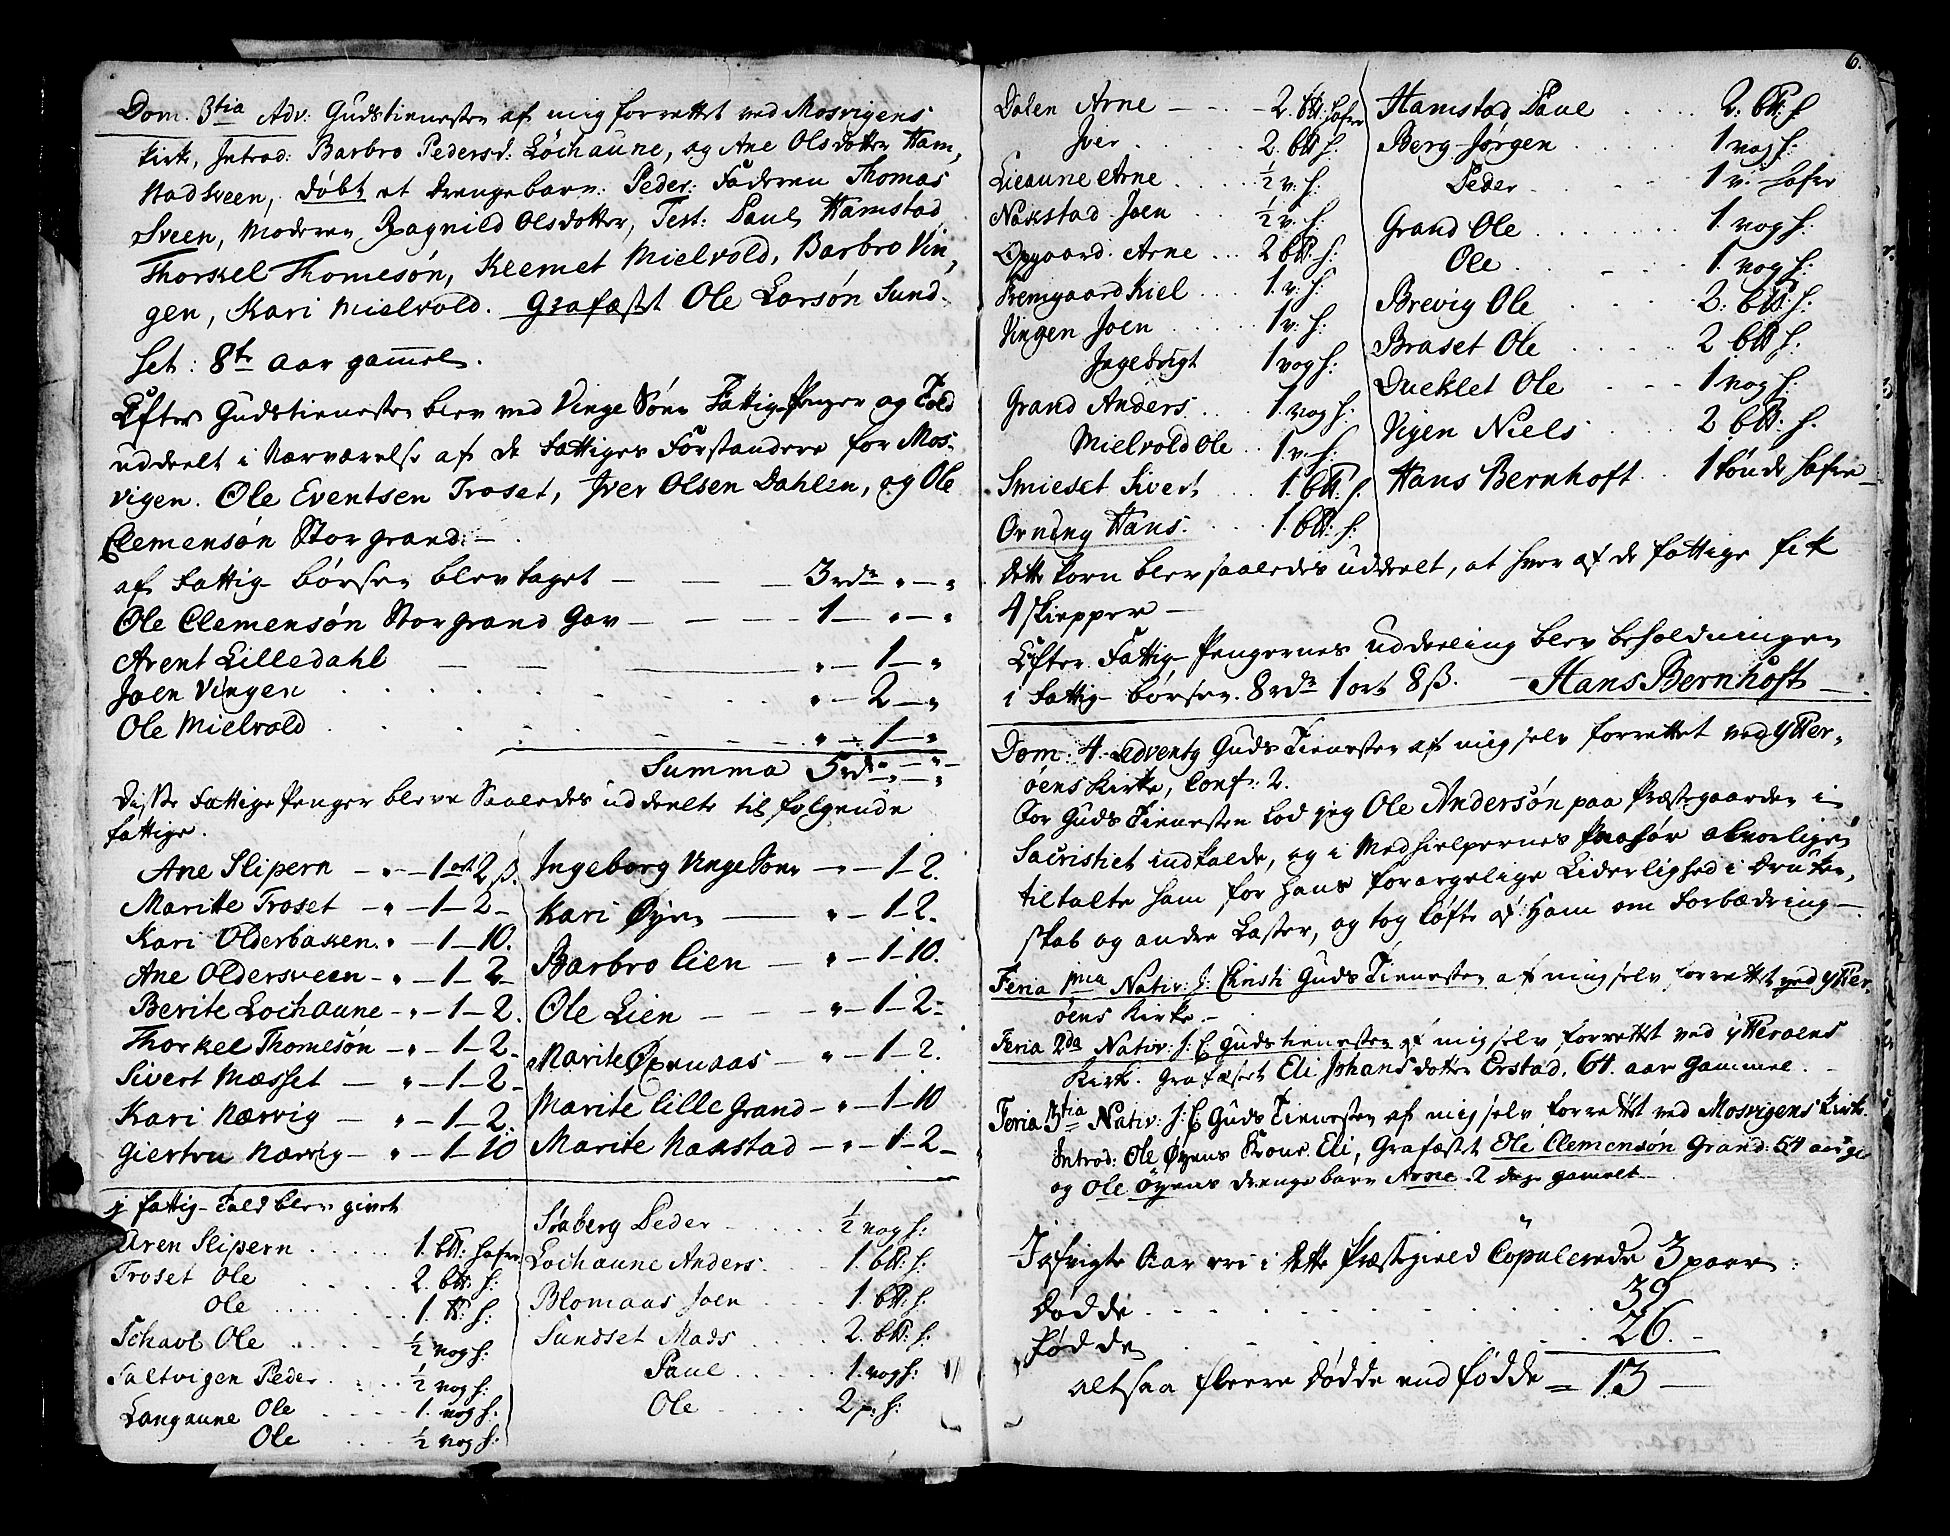 Dom. 3tia Adv: Gudstienesten af mig forrettet ved Mosvigens
kirk, Introd: Barbro Pedersd: Lochaune, og Ane Olsdotter Ham,
stadsveen, døbt et drengebarn: Peder: Faderen Thomas
Sveen, Moderen Ragnild Olsdotter, Test: Paul Hamstad
Thorskel Thomesøn, Kleemet Mielvold, Barbro Vin,
gen, Kari Mielvold. Grafæst Ole Larsøn Sund-
set: 8te aar gammel.
Efter Gudstienesten blev ved Vinge Søns Fattig-Penger og Told
uddeelt i Nærværelse af de fattiges Forstandere for Mos-
vigen. Ole Eventsen Troset, Iver Olsen Dahlen, og Ole
Clemensøn Storgrand: –
af Fattig-børsen blev taget – – – 3 rdr „ – „
Ole Clemensøn Storgrand Gav – – – – 1 – „ – „
Arent Lilledahl – – – „ – 1 – „
Joen Vingen . . . . „ – 2 – „
Ole Mielvold . . . „ – 1 – „
Summa 5 rdr „ – „
Disse Fattige Penger bleve saaledes uddeelte til følgende
fattige.
Ane Slipern – „ – 1 ort 2 ß.
Maritte Troset – „ – 1 – 2 –
Kari Olderbaken „ – 1 – 10.
Ane Oldersveen – „ – 1 – 2 –
Berite Lochaune – „ – 1 – 2.
Thorkel Thomesøn – „ – 1 – 2 –
Sivert Mæsset – „ – 1 – 2 –
Kari Nærvig – „ – 1 – 2.
Giertru Nærvig – „ – 1 – 10
Ingeborg Vinge Sønn „ – 1 – 2.
Kari Øyen – „ – 1 – 2 –
Barbro Lien – „ – 1 – 10.
Ole Lien – – – „ – 1 – 2 –
Marite Øxnaas – „ – 1 – 2.
Marite Lille Grand – „ – 1 – 10
Marite Nakstad – „ – 1 – 2 –
I fattig-Told blev givet
Aren Slipern . . . . 1. btt: hafre
Troset Ole . . . . 2. btt: h:
Ole . . . . 1. tt: h:
Schavl Ole . . . . ½ vog h:
Saltvigen Peder . . . . ½ vog h:
Langaune Ole . . . . 1. vog h:
Ole . . . . ½ vog h:
Staberg Peder . . . . ½ vog h:
Lochaune Anders . . . . 1. btt: h:
Blomaas Joen . . . . 1. btt: h:
Sundset Mads . . . . 2. btt: h:
Paul . . . . 1. vog h:
Ole . . . . 2 p: h:
6.
Dalen Arne – – – 2. btt: hafre
Iver . . . . 2. btt h:
Lieaune Arne . . . . ½ v: h:
Nakstad Joen . . . ½ v: h:
Opgaard Arne . . . 2 btt: h:
Fremgaard Kiel . . . 1. v: h:
Vingen Joen . . . . 1 v: h:
Ingebrigt 1 vog h:
Grand Anders . . . 1. vog h:
Mielvold Ole . . 1. v: h:
Smieset Sivert . . . 1. btt: h.
Orning Hans . . . . 1. btt: h:
Hamstad Paul . . . . 2. btt: h
Berg Jørgen . . . . 1 vog h:
Peder . . . . 1 v. hafre
Grand Ole . . . . 1. vog h:
Ole . . . . 1. vog h:
Brevig Ole . . . . 2. btt: h:
Braset Ole . . . . 2 btt h:
Duehlet Ole . . . . 1 vog h:
Vigen Niels . . . . 2 btt: h.
Hans Bernhoft . . 1 tønde hafre
dette korn blev saaledes uddeelt, at hver af de fattige fik
4 skiepper –
Efter Fattig-Pengernes uddeeling blev beholdningen
i fattig-børsen 8 rdr 1 ort 8 ß. – Hans Bernhoft –
Dom: 4. Adventg Guds Tienesten af mig selv forrettet ved Ytter,
øens Kirke, Conf: 2.
For Guds Tienesten lod jeg Ole Andersøn paa Præstegaarden i
Sacristiet indkalde, og i Medhielpernes Paahør alvorligen
tiltalte ham for hans forargelige Liderlighed i Drukken,
skab og andre Laster, og tog løfte af Ham om Forbædring –
Feria 1ma Nativ: J: Christi Guds Tienesten af mig selv forrettet ved Ytter,
øens Kirke –
Feria 2da Nativ: J: C Guds tienesten af mig selv forrettet ved Ytterøens
Kirk. Grafæstet Eli Johansdotter Erstad, 64. aar gammel. –
Feria 3tia Nativ: J: C Guds Tienesten af mig selv forrettet ved Mosvigens kirk.
Introd: Ole Øyens Kone Eli, Grafæstet Ole Clemensøn Grand: 54 aar gl
og Ole Øyens drenge barn Arne 2 dage gamelt –
I afvigte Aar ere i dette Præstegield Copulerede 3 paar.
Dødde . . . . 39
Fødde . . . . 26. –
altsaa fleere dødde end fødde = 13 –